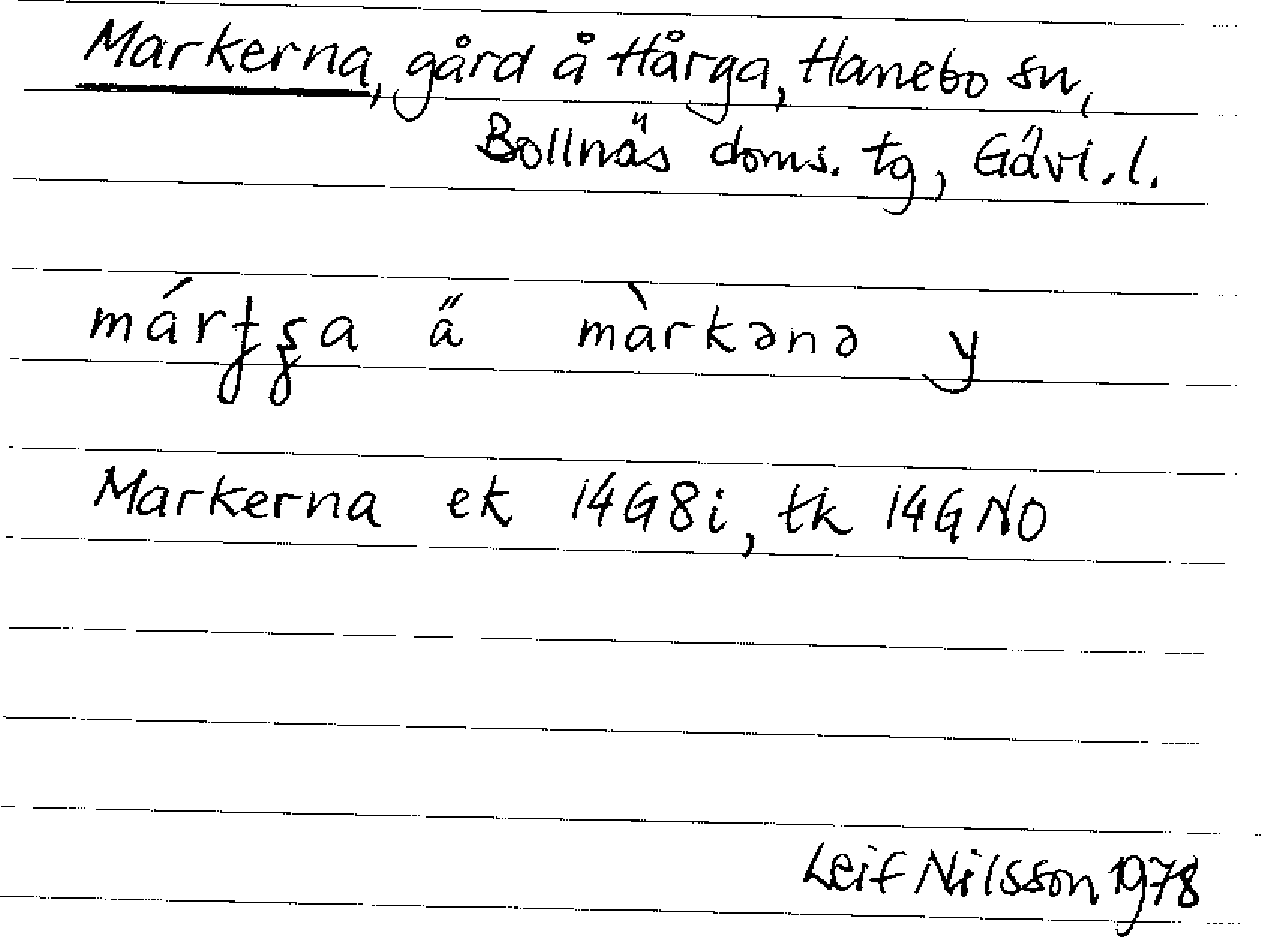 Markerna, gård å Hårga, Hanebo sn,
Bollnäs doms. tg, Gävl. l.
a̋ màrkənə y
Markerna ek 14G8i, tk 14GNO
Leif Nilsson 1978